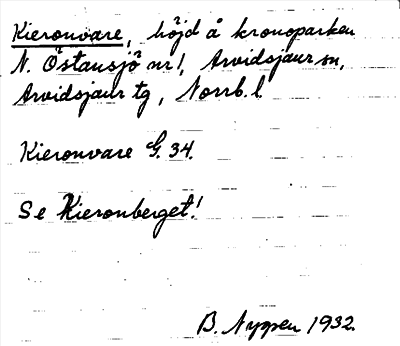 Kieronvare, höjd å kronoparken
N. Östansjö nr 1, Arvidsjaur sn,
Arvidsjaur tg, Norrb. l.
Kieronvare G. 34.
Se Kieronberget!
B. Nygren 1932.